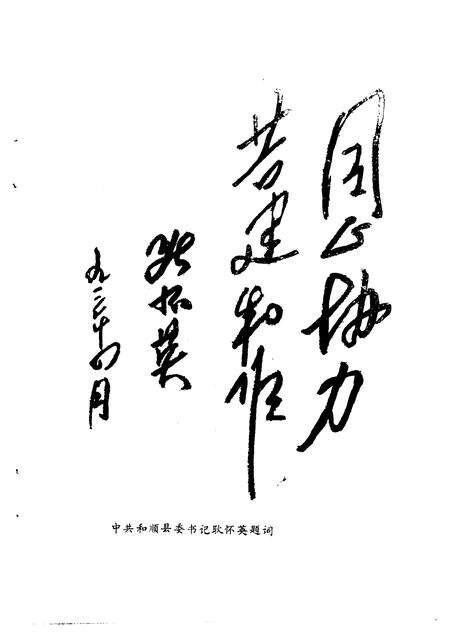 同心协力
共建和顺
耿怀英
九三年四月
中共和顺县委书记耿怀英题词